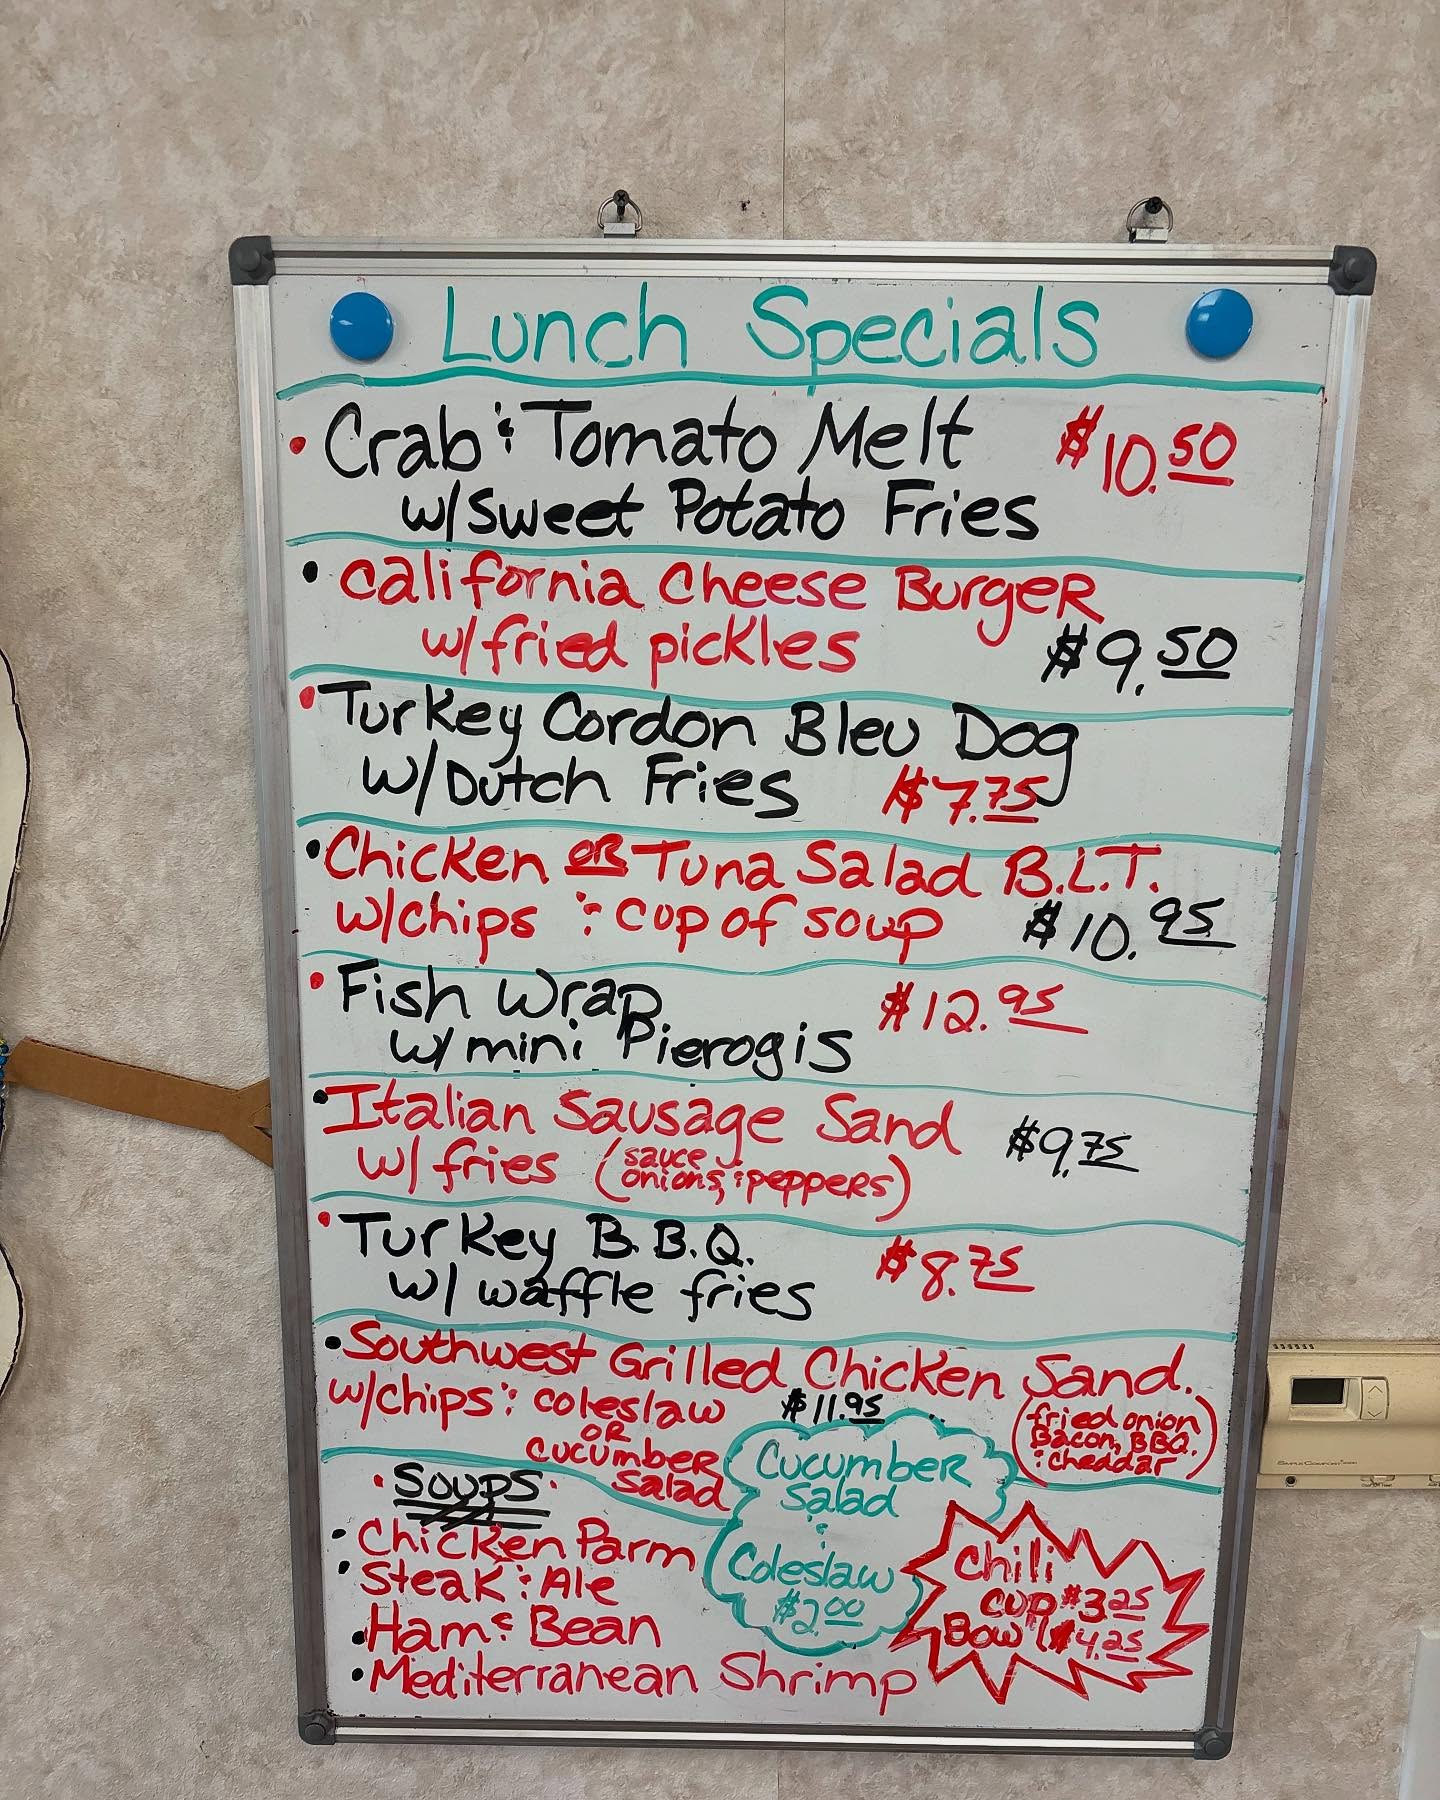 Lunch Specials
• Crab & Tomato Melt $10.50
w/sweet Potato Fries
• California Cheese BurgeR
w/fried pickles $9.50
• Turkey Cordon Bleu Dog
w/Dutch Fries $7.75
• Chicken OR Tuna Salad B.L.T.
w/chips & cup of soup $10.95
• Fish Wrap $12.95
w/ mini Pierogis
• Italian Sausage Sand $9.75
w/ fries (sauce
onions, & peppeRs)
• Turkey B.B.Q. $8.75
w/ waffle fries
• Southwest Grilled Chicken Sand.
w/chips & coleslaw $11.95
OR
cucumbeR
salad
(fried onion
Bacon, BBQ.
& cheddar)
• Soups •
• Chicken Parm
• Steak & Ale
• Ham & Bean
• Mediterranean Shrimp
CucumbeR
salad
&
Coleslaw
$2.00
Chili
cup $3.25
Bowl $4.25